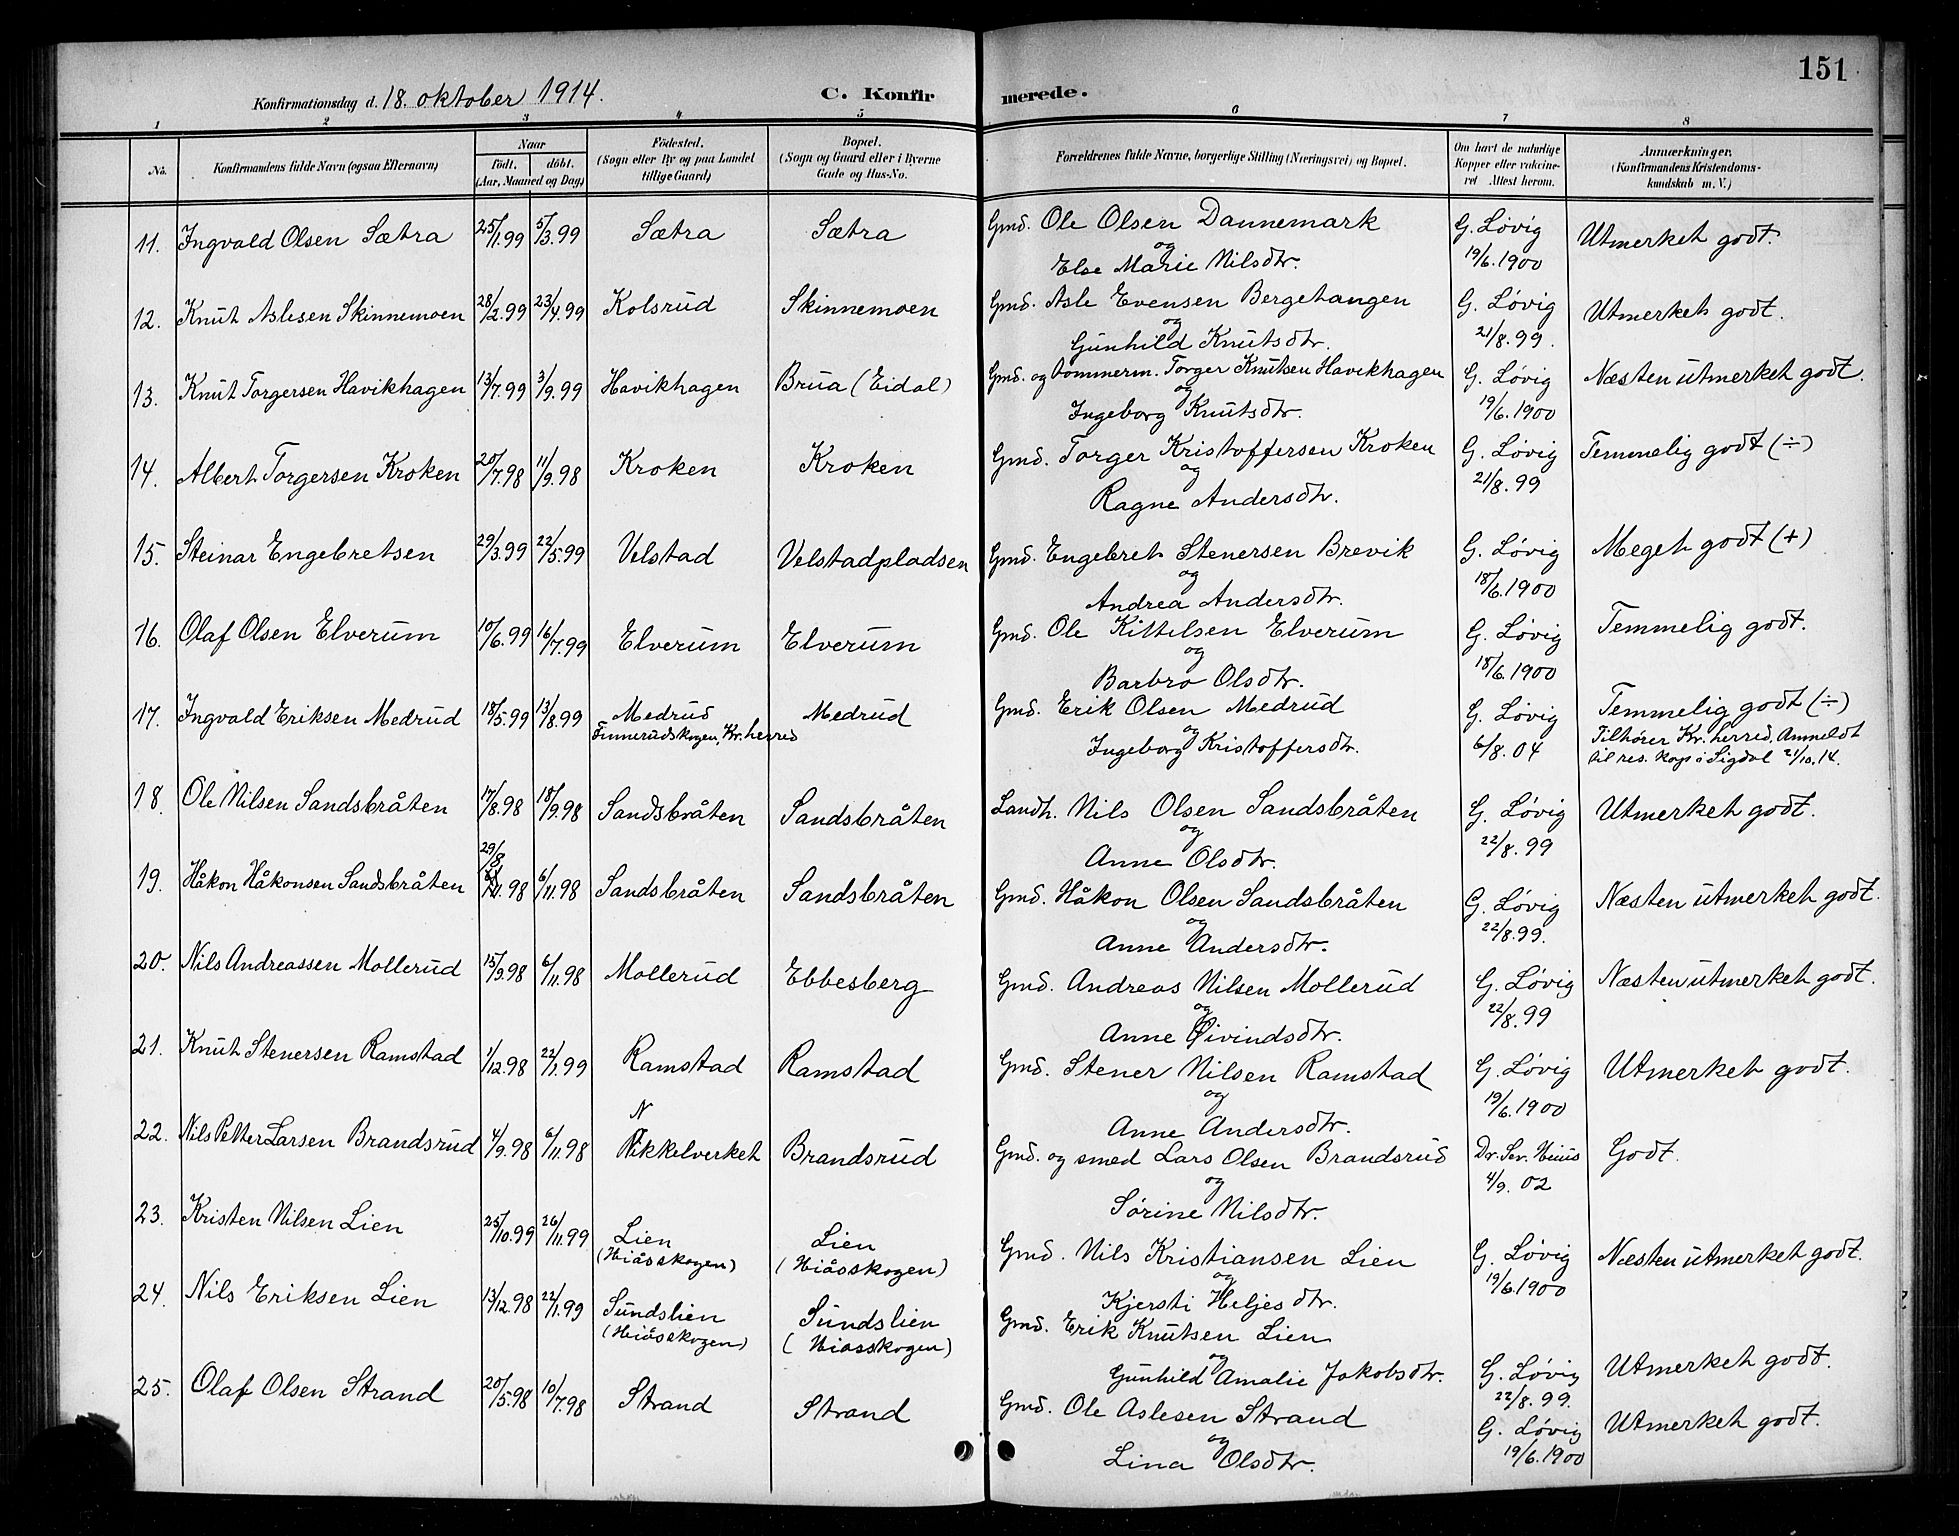 151
Konfirmationsdag d. 18. oktober 1914.
C. Konfirmerede.
1 2 3 4 5 6 7 8
No. Konfirmandens fulde Navn (ogsaa Efternavn) Naar födt. döbt. (Aar, Maaned og Dag) Födested. (Sogn eller By og paa Landet tillige Gaard) Bopæl. (Sogn og Gaard eller i Byerne Gade og Hus-No. Forældrenes fulde Navne, borgerlige Stilling (Næringsvei) og Bopæl. Om havt de naturlige Kopper eller vaccineret Attest herom. Anmærkninger. (Konfirmandens Kristendomskundskab m. V.)
11. Ingvald Olsen Sætra 25/1.99 5/3.99 Sætra Sætra Gmd. Ole Olsen Dannemark G. Løvig Utmerket godt.
og
Else Marie Nilsdtr. 19/6.1900
12. Knut Aslesen Skinnemoen 28/2.99 23/4.99 Kolsrud Skinnemoen Gmd. Asle Evensen Bergehangen G. Løvig Utmerket godt.
og
Gunhild Knutsdtr. 21/8.99.
13. Knut Torgersen Havikhagen 13/7.99 3/9.99 Havikhagen Brua (Eidal) Gmd. og tømmerm. Torger Knutsen Havikhagen G. Løvig Næsten utmerket godt.
og
Ingeborg Knutsdtr. 19/6.1900
14. Albert Torgersen Kroken 20/7.98 11/9.98 Kroken Kroken Gmd. Torger Kristoffersen Kroken G. Løvig Temmelig godt (÷)
og
Ragne Andersdtr. 21/8.99
15. Steinar Engebretsen 29/3.99 22/5.99 Velstad Velstadpladsen Gmd. Engebret Stenersen Brevik G. Løvig Meget godt (+)
og
Andrea Andersdtr. 18/6.1900
16. Olaf Olsen Elverum 10/6.99 16/7.99 Elverum Elverum Gmd. Ole Kittelsen Elverum G. Løvig Temmelig godt.
og
Barbro Olsdtr. 18/6.1900
17. Ingvald Eriksen Medrud 18/5.99 13/8.99 Medrud Medrud Gmd. Erik Olsen Medrud G. Løvig Temmelig godt (÷)
Finnerudskogen, Kr. herred og Tilhører Kr. herred. Anmeldt
Ingeborg Kristoffersdtr. 6/8.04 til res. kap i Sigdal 21/10.14.
18. Ole Nilsen Sandsbråten 17/8.98 18/9.98 Sandsbråten Sandsbråten Landh. Nils Olsen Sandsbråten G. Løvig Utmerket godt.
og
Anne Olsdtr. 22/8.99
19. Håkon Håkonsen Sandsbråten 29/8 98 6/11.98 Sandsbråten Sandsbråten Gmd. Håkon Olsen Sandsbråten G. Løvig Næsten utmerket godt.
og
Anne Andersdtr. 22/8.99.
20. Nils Andreassen Mollerud 15/9.98 6/11.98 Mollerud Ebbesberg Gmd. Andreas Nilsen Mollerud G. Løvig Næsten utmerket godt.
og
Anne Øivindsdtr. 22/8.99
21. Knut Stenersen Ramstad 1/12.98 22/1.99 Ramstad Ramstad Gmd. Stener Nilsen Ramstad G. Løvig Utmerket godt.
og
Anne Andersdtr. 19/6.1900
22. Nils Petter Larsen Brandsrud 4/9.98 6/11.98 Nikkelverket Brandsrud Gmd. og smed Lars Olsen Brandsrud Dr. Sev. Godt.
og
Sørine Nilsdtr. 4/9. 02
23. Kristen Nilsen Lien 25/10.99 26/11.99 Lien Lien Gmd. Nils Kristiansen Lien G. Løvig Næsten utmerket godt.
(Hiåsskogen) (Hiåsskogen) og
Kjersti Heljesdtr. 19/6.1900
24. Nils Eriksen Lien 13/12.98 22/1.99 Sundslien Sundslien Gmd. Erik Knutsen Lien
(Hiåsskogen) (Hiasskogen) og
Gunhild Amalie Jakobsdtr. G. Løvig Utmerket godt.
22/8.99.
25. Olaf Olsen Strand 20/5.98 10/7.98 Strand Strand Gmd. Ole Aslesen Strand G. Løvig Utmerket godt.
og
Lina Olsdtr. 19/6.1900